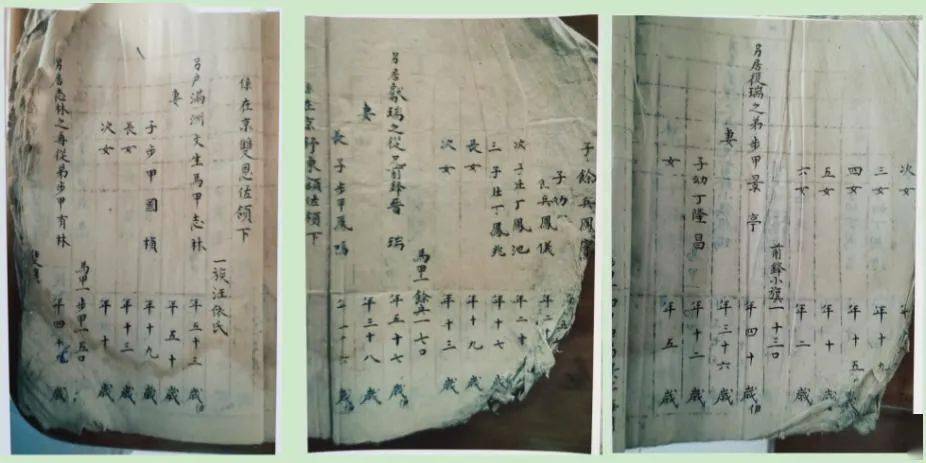 係在京雙恩佐領下
一族汪依氏
另户滿洲文生馬甲志林 年五十三歲
妻 年五十歲
子步甲國楨 年十九歲
長女 年十三歲
次女 年十歲
馬甲一步甲一五口
另居志林之再從弟步甲有林 年四十歲
子餘兵鳳
子幼
兵鳳儀 年二
次子壯丁鳳池 年二十歲
三子壯丁鳳兆 年十七歲
長女 年十九歲
次女 年十三歲
馬甲一餘兵一七口
另居獻瑞之從兄前鋒晉瑞 年五十七歲
妻 年三十八歲
長子步甲鳳鳴 年二十歲
佐領下
次女 年
三女 年十九歲
四女 年十五歲
五女 年十歲
六女 年二歲
前鋒小旗一十三口
另居復瑞之弟步甲景亭 年四十歲
妻 年三十六歲
子幼丁隆昌 年十二歲
女 年五歲